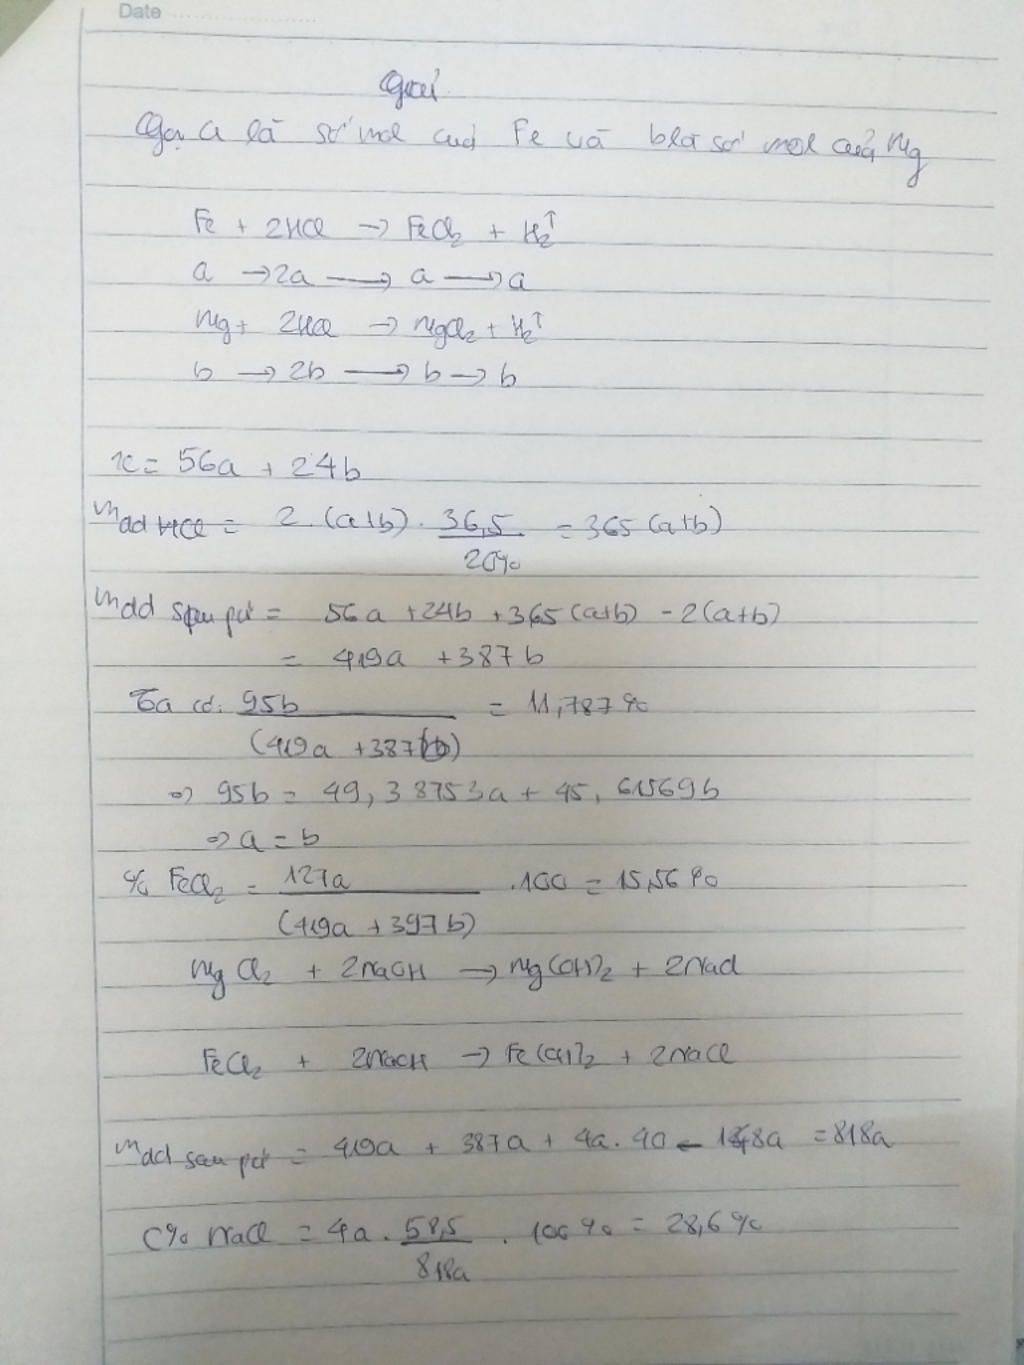 Date
Giải
Gọi a là số mol của Fe và b là số mol của Mg
Fe + 2HCl → FeCl₂ + H₂↑
a → 2a → a → a
Mg + 2HCl → MgCl₂ + H₂↑
b → 2b → b → b
x = 56a + 24b
mdd HCl = 2.(a+b).36,5/20% = 365(a+b)
mdd sau pư = 56a + 24b + 365(a+b) - 2(a+b)
= 419a + 387b
Ta có: 95b/(419a + 387b) = 11,787%
⇒ 95b = 49,38753a + 45,61569b
⇒ a = b
% FeCl₂ = 127a/(419a + 397b) .100 = 15,56%
MgCl₂ + 2NaOH → Mg(OH)₂ + 2NaCl
FeCl₂ + 2NaOH → Fe(OH)₂ + 2NaCl
mdd sau pư = 419a + 387a + 4a.40 - 148a = 818a
C% NaCl = 4a.58,5/818a . 100% = 28,6%